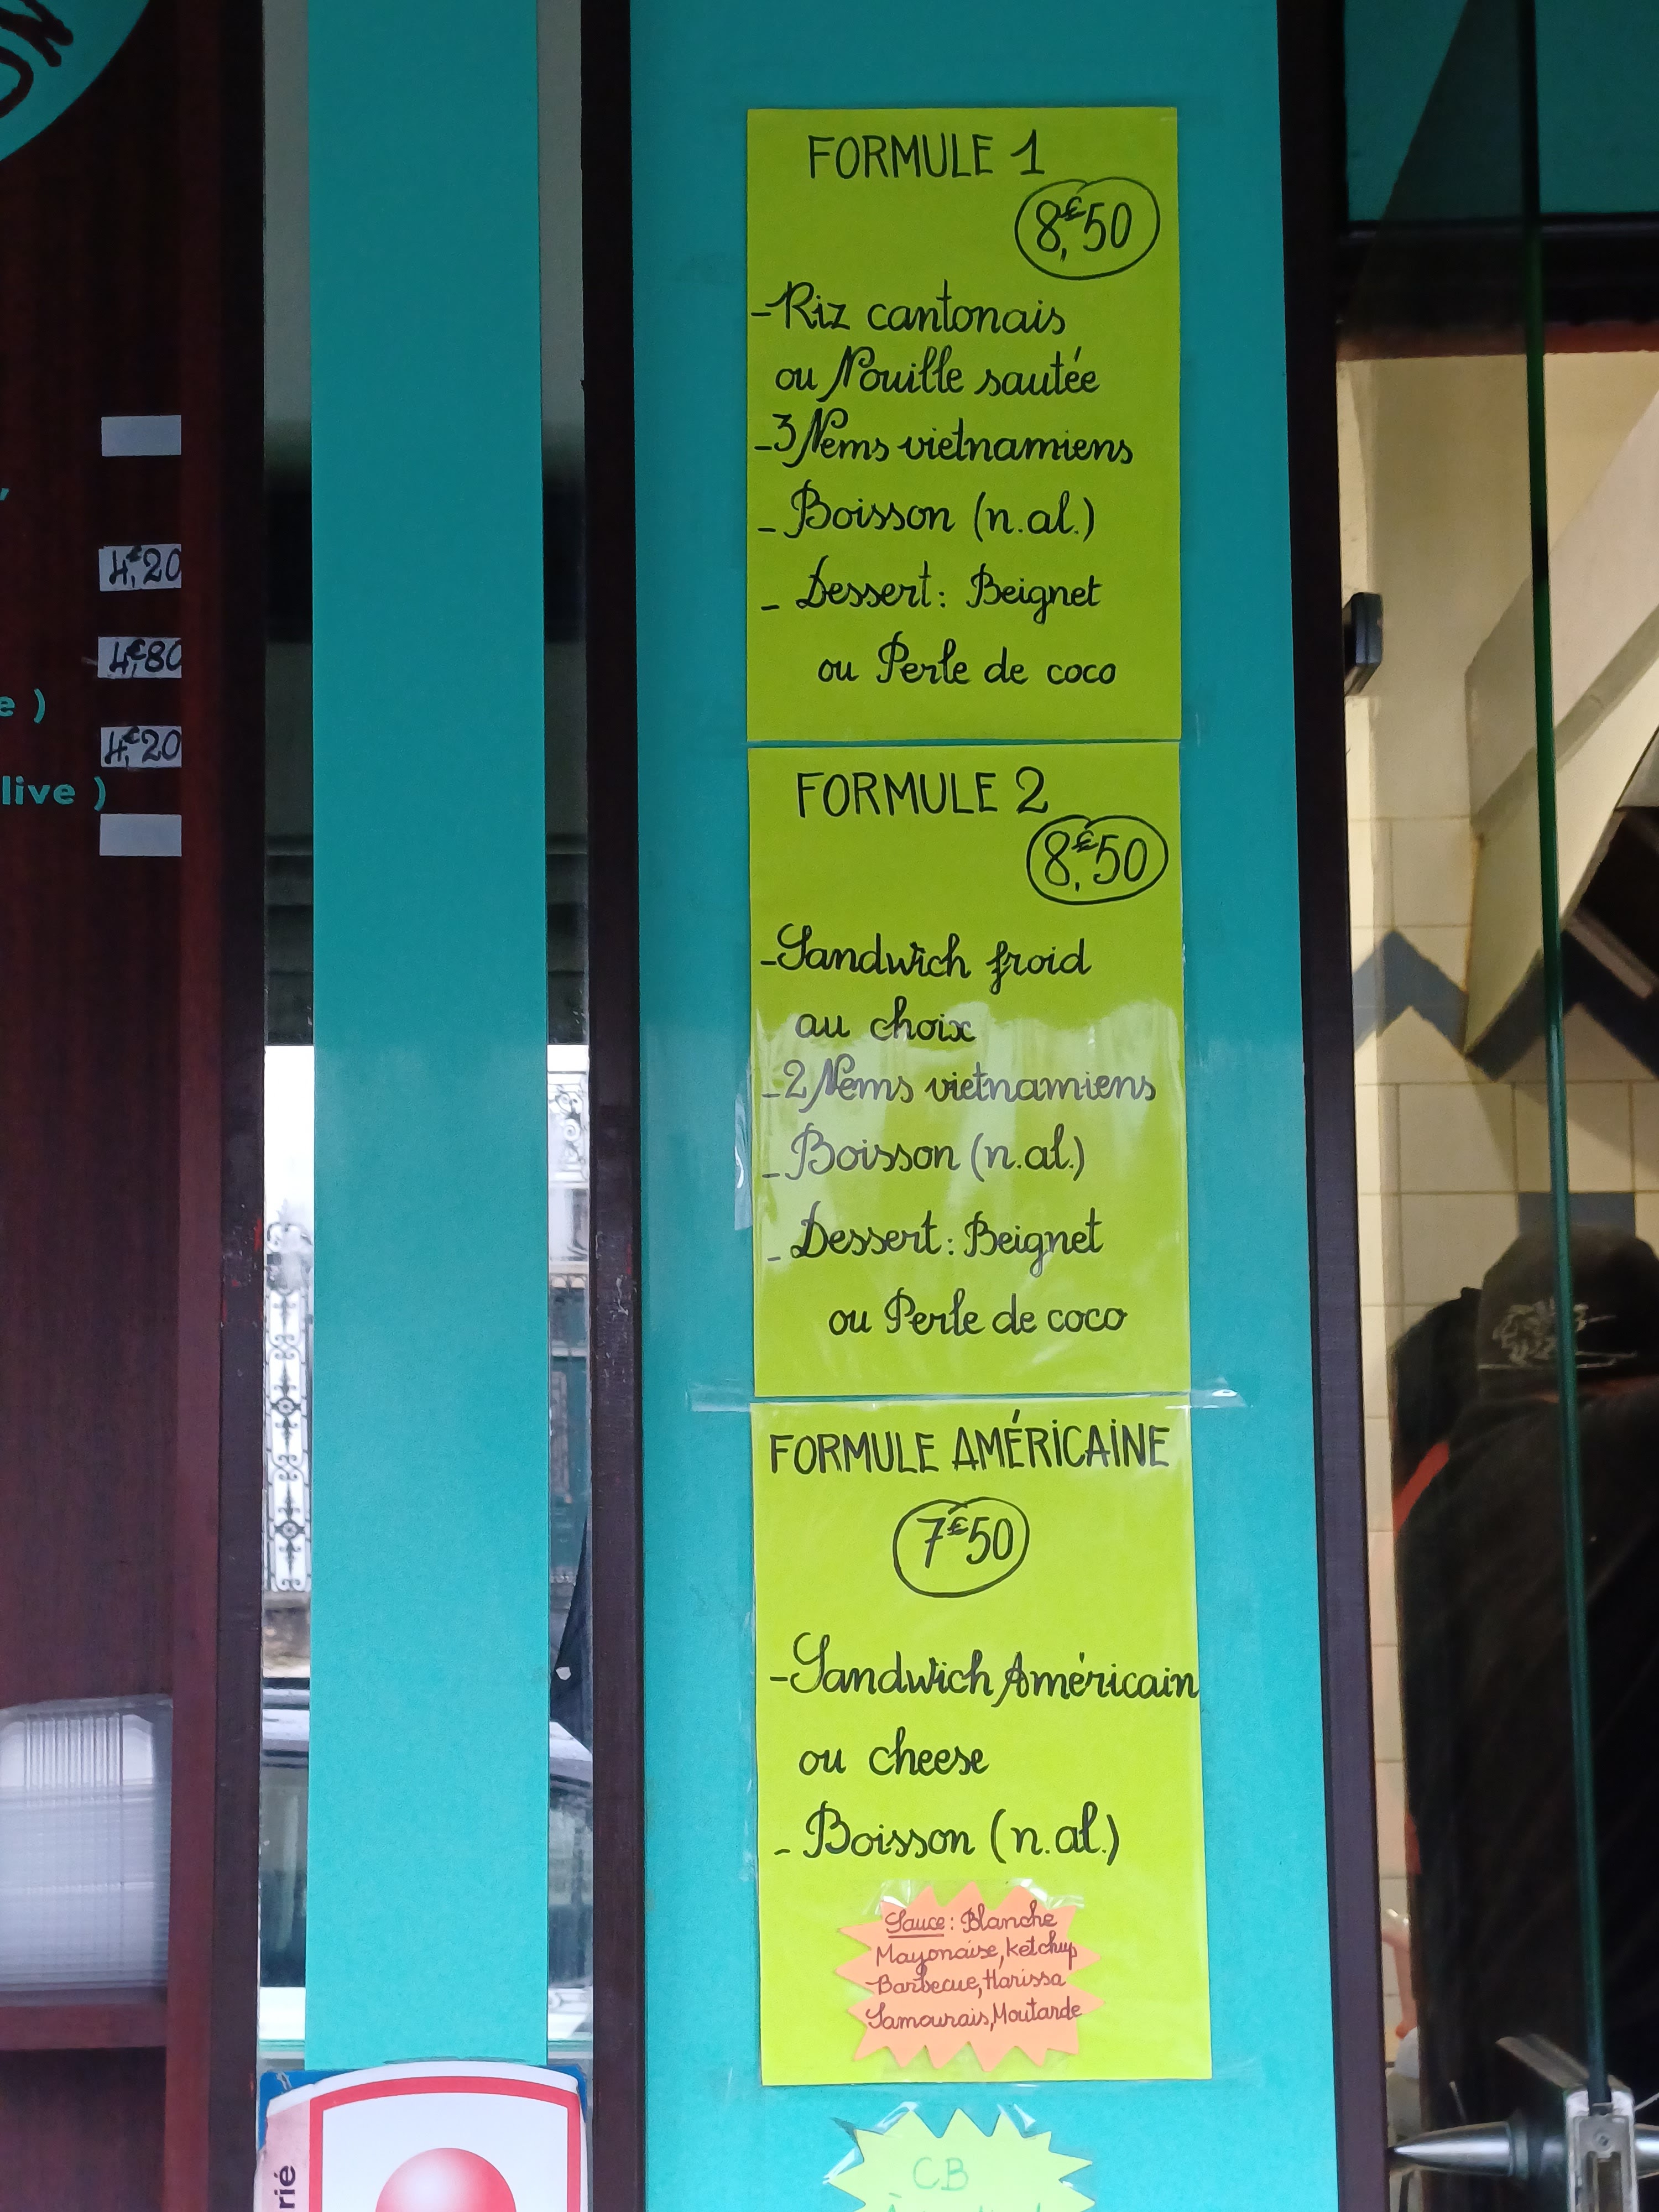 ON
4,€20
4,€80
e )
4,€20
live )
FORMULE 1
8,€50
-Riz cantonais
ou Nouille sautée
-3 Nems vietnamiens
- Boisson (n.al.)
- Dessert : Beignet
ou Perle de coco
FORMULE 2
8,€50
-Sandwich froid
au choix
-2 Nems vietnamiens
- Boisson (n.al.)
- Dessert : Beignet
ou Perle de coco
FORMULE AMÉRICAINE
7€50
-Sandwich Américain
ou cheese
- Boisson (n.al.)
Sauce : Blanche
Mayonaise, ketchup
Barbecue, Harissa
Samourais, Moutarde
CB
rié